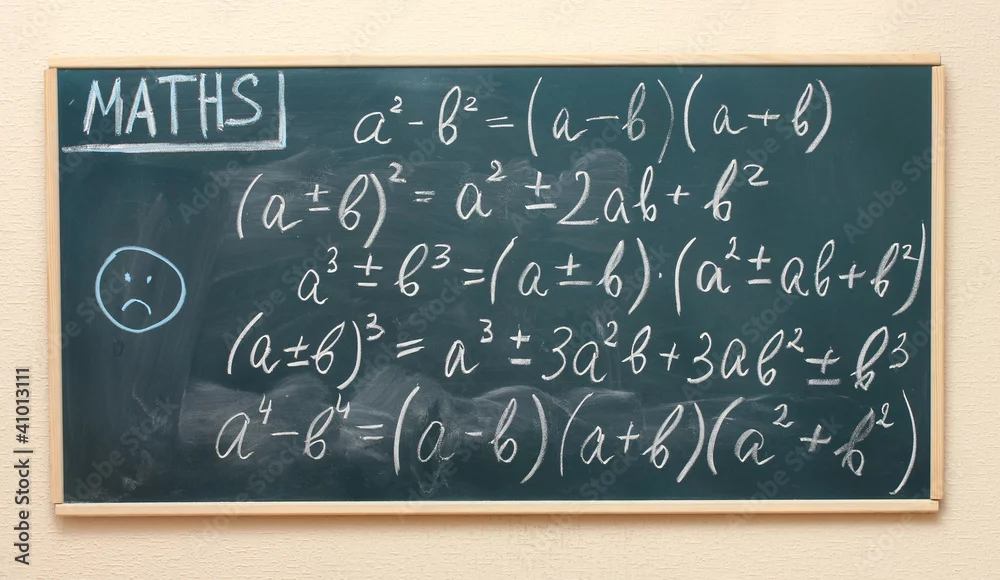 MATHS
a² - b² = (a - b)(a + b)
(a ± b)² = a² ± 2ab + b²
a³ ± b³ = (a ± b) · (a² ± ab + b²)
(a ± b)³ = a³ ± 3a²b + 3ab² ± b³
a⁴ - b⁴ = (a - b)(a + b)(a² + b²)
Adobe Stock | #41013111
Adobe Stock